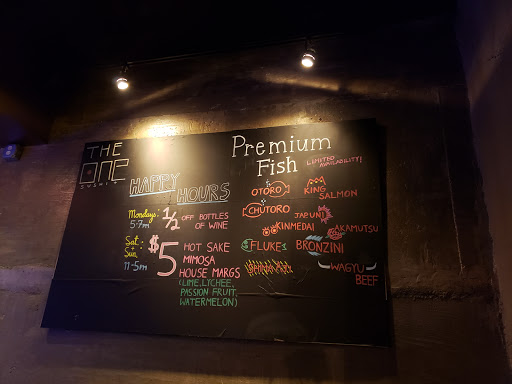 THE
ONE
SUSHI +
HAPPY
HOURS
Mondays
5-7pm
1/2 OFF BOTTLES
OF WINE
Sat.
+
Sun
11-5pm
$5 HOT SAKE
MIMOSA
HOUSE MARGS
(LIME, LYCHEE,
PASSION FRUIT,
WATERMELON)
Premium
Fish
LIMITED
AVAILABILITY!
OTORO
KING
SALMON
CHUTORO
KINMEDAI
AKAMUTSU
FLUKE
BRONZINI
WAGYU
BEEF